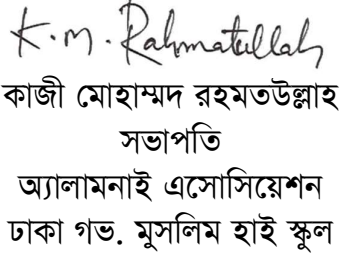 K. M. Rahmatullah
কাজী মোহাম্মদ রহমতউল্লাহ
সভাপতি
অ্যালামনাই এসোসিয়েশন
ঢাকা গভ. মুসলিম হাই স্কুল